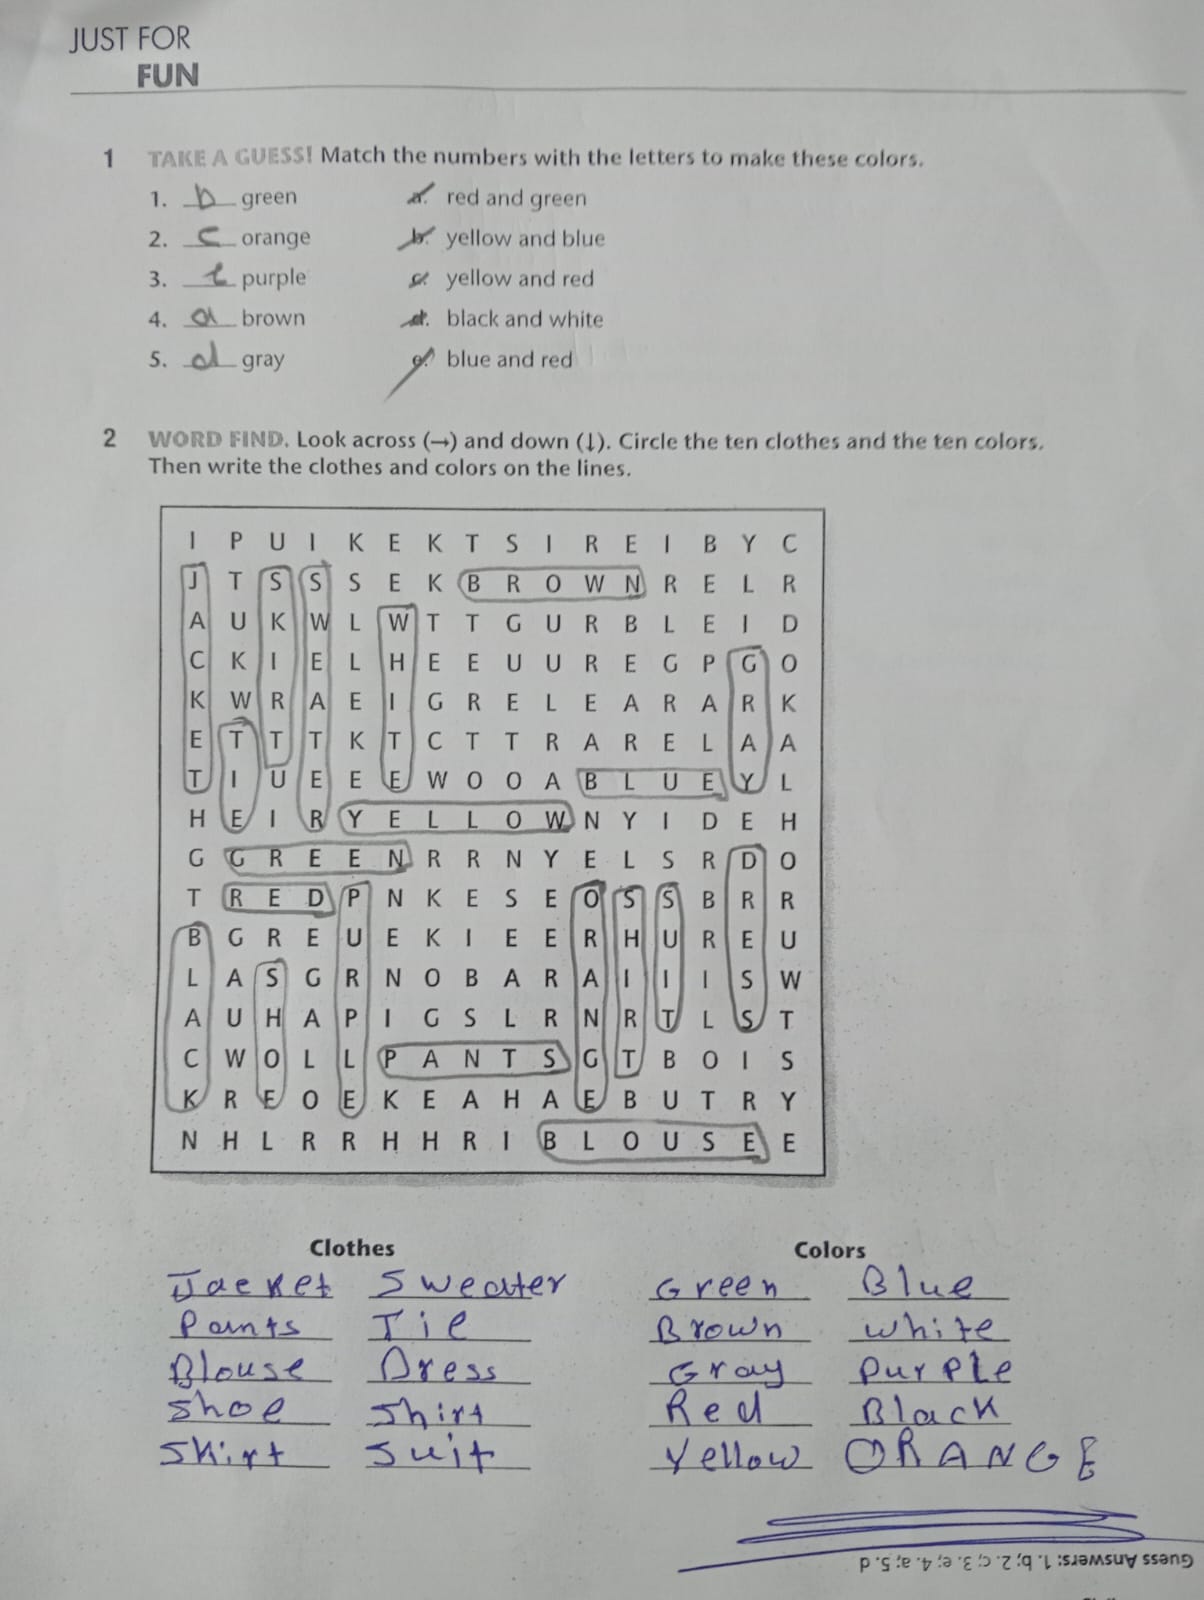 JUST FOR
FUN
1 TAKE A GUESS! Match the numbers with the letters to make these colors.
1. b green a. red and green
2. c orange b. yellow and blue
3. e purple c. yellow and red
4. a brown d. black and white
5. d gray e. blue and red
2 WORD FIND. Look across (→) and down (↓). Circle the ten clothes and the ten colors.
Then write the clothes and colors on the lines.
I P U I K E K T S I R E I B Y C
J T S S S E K B R O W N R E L R
A U K W L W T T G U R B L E I D
C K I E L H E E U U R E G P G O
K W R A E I G R E L E A R A R K
E T T T K T C T T R A R E L A A
T I U E E E W O O A B L U E Y L
H E I R Y E L L O W N Y I D E H
G G R E E N R R N Y E L S R D O
T R E D P N K E S E O S S B R R
B G R E U E K I E E R H U R E U
L A S G R N O B A R A I I I S W
A U H A P I G S L R N R T L S T
C W O L L P A N T S G T B O I S
K R E O E K E A H A E B U T R Y
N H L R R H H R I B L O U S E E
Clothes Colors
Jacket Sweater Green Blue
Pants Tie Brown White
Blouse Dress Gray Purple
Shoe Shirt Red Black
Skirt Suit Yellow ORANGE
Guess Answers: 1. b; 2. c; 3. e; 4. a; 5. d